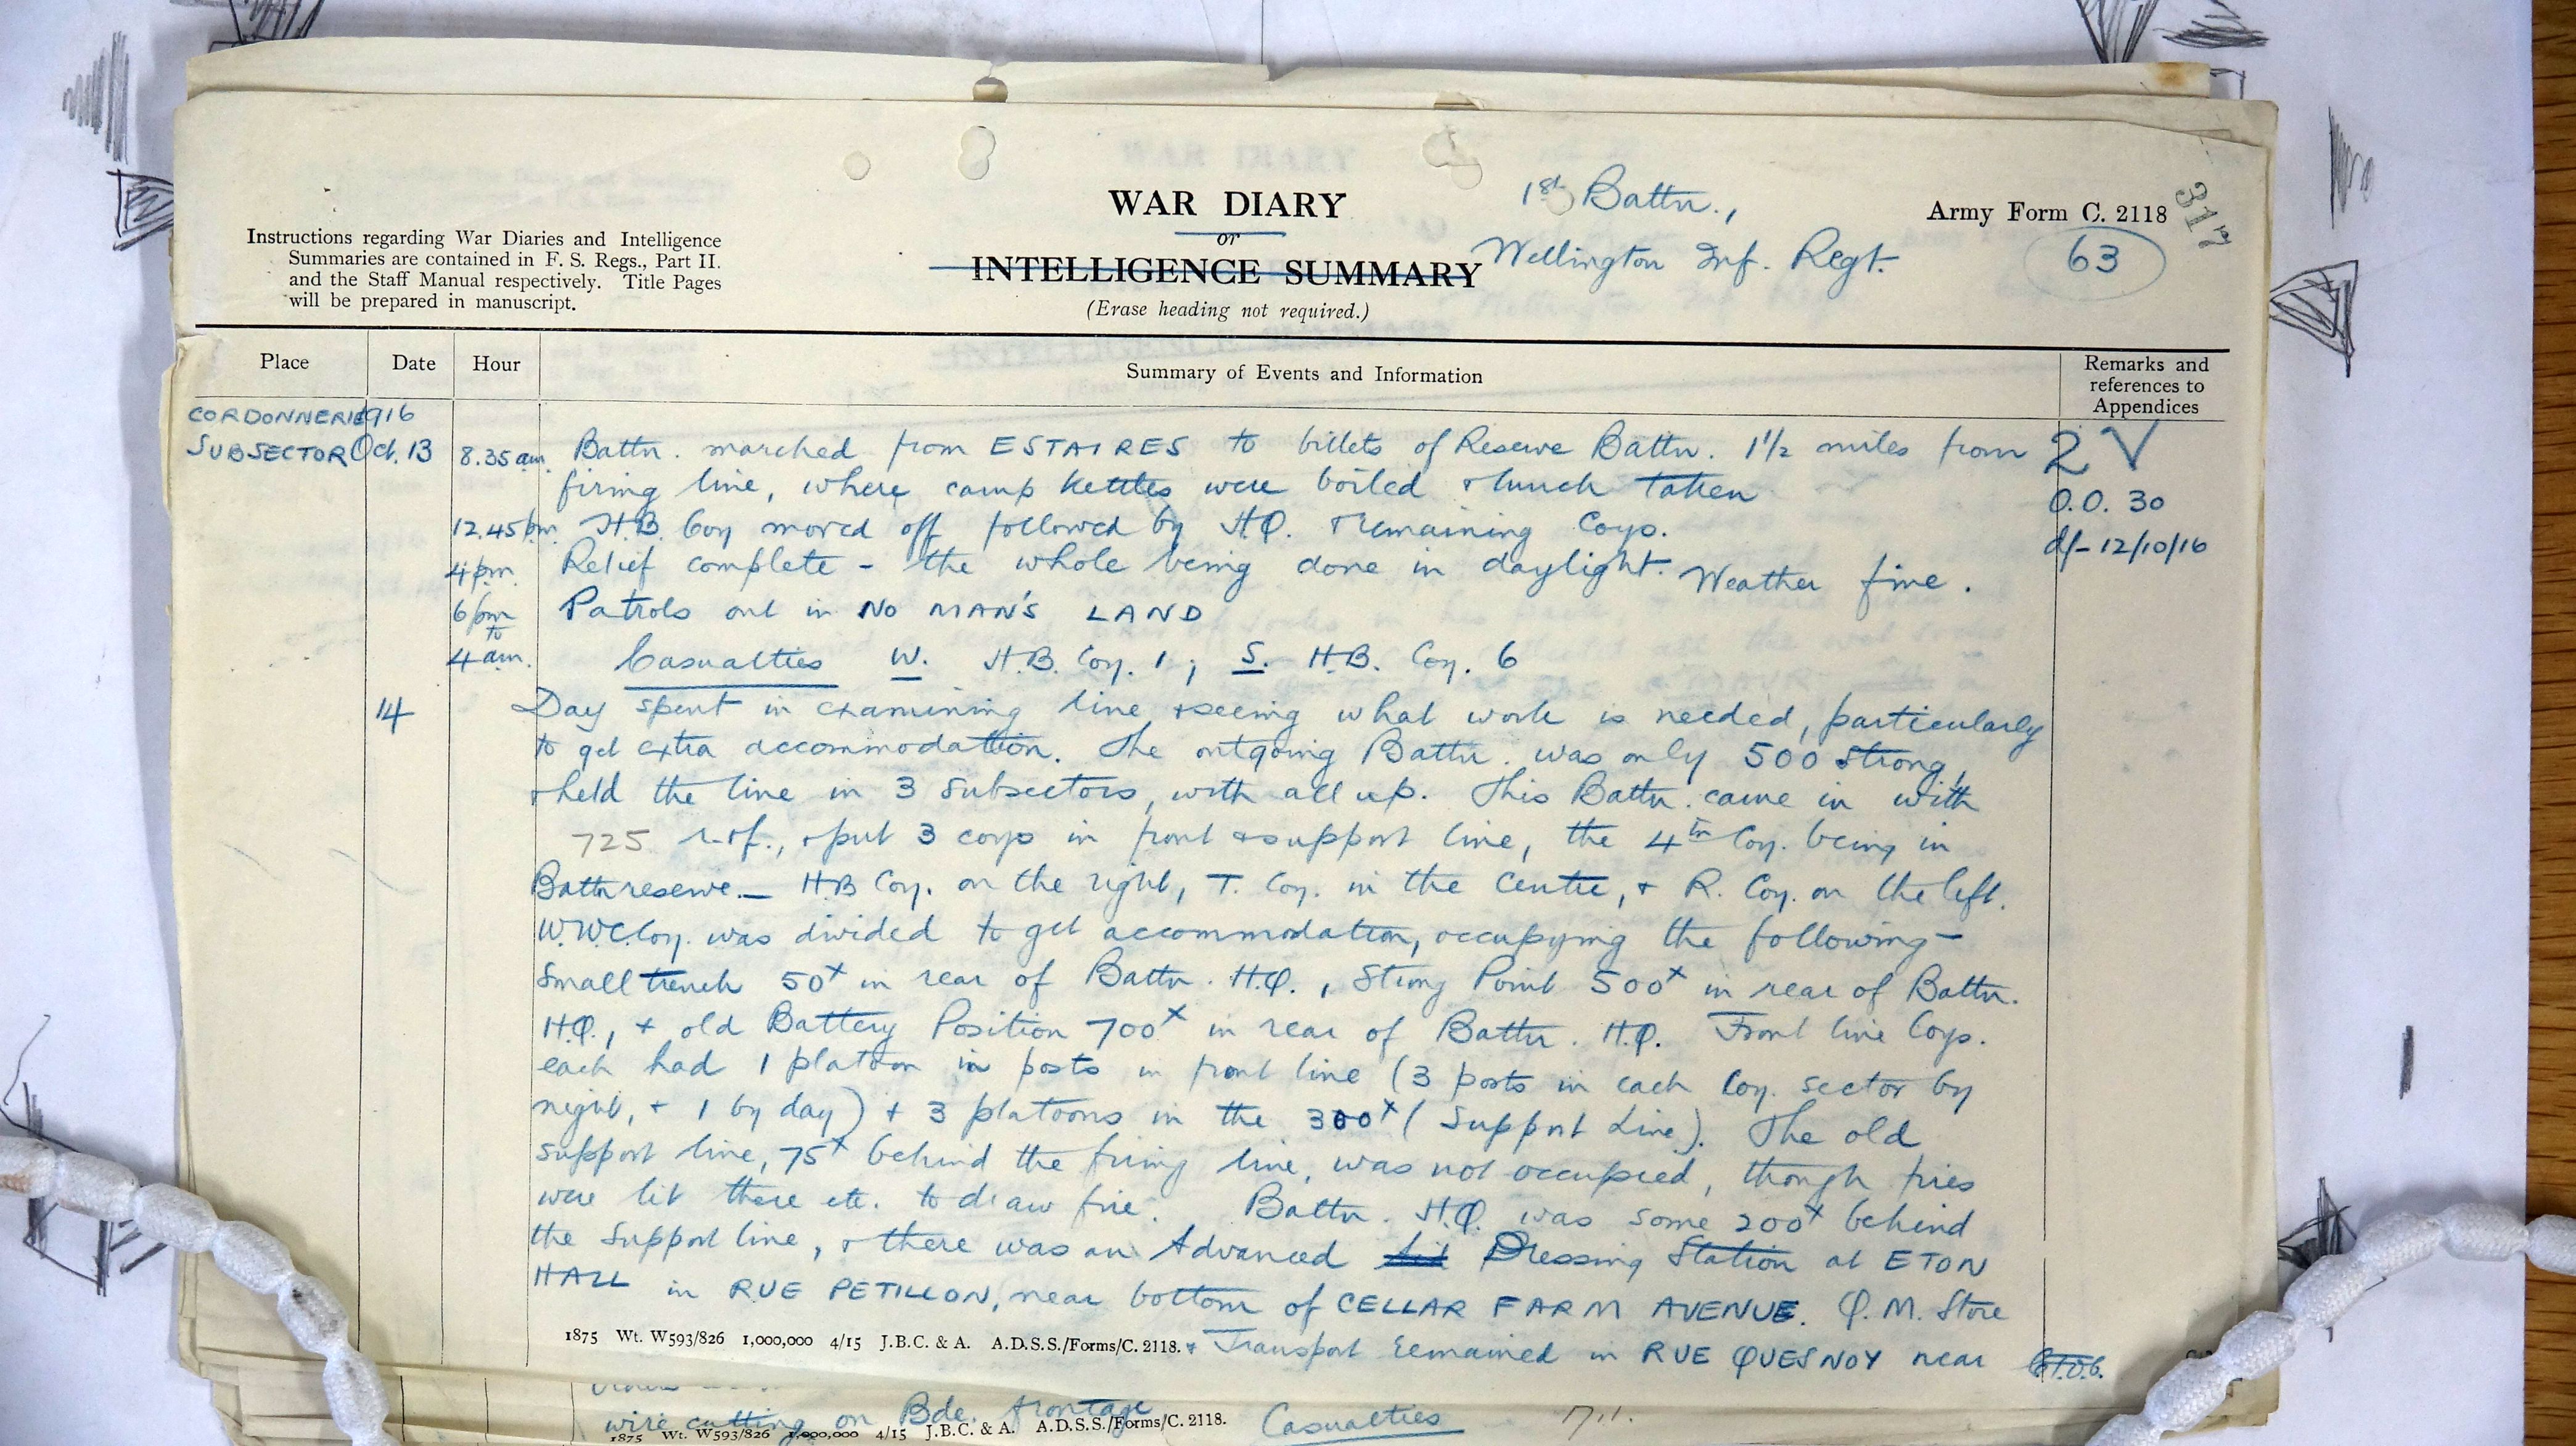 317
WAR DIARY
or
INTELLIGENCE SUMMARY
(Erase heading not required.)
1st Battn.,
Wellington Inf. Regt.
Army Form C. 2118
63
Instructions regarding War Diaries and Intelligence
Summaries are contained in F. S. Regs., Part II.
and the Staff Manual respectively. Title Pages
will be prepared in manuscript.
Place Date Hour Summary of Events and Information Remarks and
references to
Appendices
CORDONNERIE 1916
SUBSECTOR Oct. 13 8.35 am. Battn. marched from ESTAIRES to billets of Reserve Battn. 1½ miles from 2 √
firing line, where camp kettles were boiled & lunch taken O.O. 30
12.45 pm. H.B. Coy moved off followed by H.Q. & remaining Coys. d/- 12/10/16
4 pm. Relief complete - the whole being done in daylight. Weather fine.
6 pm Patrols out in NO MAN'S LAND
to
4 am. Casualties W. H.B. Coy. 1; S. H.B. Coy. 6
14 Day spent in examining line & seeing what work is needed, particularly
to get extra accommodation. The outgoing Battn. was only 500 strong,
& held the line in 3 subsectors, with all up. This Battn. came in with
725 r. & f., & put 3 coys in front & support line, the 4th Coy. being in
Battn reserve. — H.B Coy. on the right, T. Coy. in the centre, & R. Coy. on the left.
W.W.C. Coy. was divided to get accommodation, occupying the following -
Small trench 50x in rear of Battn. H.Q., Strong Point 500x in rear of Battn.
H.Q., & old Battery Position 700x in rear of Battn. H.Q. Front line Coys.
each had 1 platoon in posts in front line (3 posts in each Coy. sector by
night, & 1 by day) & 3 platoons in the 300x (Support Line). The old
support line, 75x behind the firing line, was not occupied, though fires
were lit there etc. to draw fire. Battn. H.Q. was some 200x behind
the Support line, & there was an Advanced Dressing Station at ETON
HALL in RUE PETILLON, near bottom of CELLAR FARM AVENUE. Q.M. Store
1875 Wt. W593/826 1,000,000 4/15 J.B.C. & A. A.D.S.S./Forms/C. 2118. & Transport remained in RUE QUESNOY near
wire cutting on Bde. frontage Casualties
1875 Wt. W593/826 1,000,000 4/15 J.B.C. & A. A.D.S.S./Forms/C. 2118.